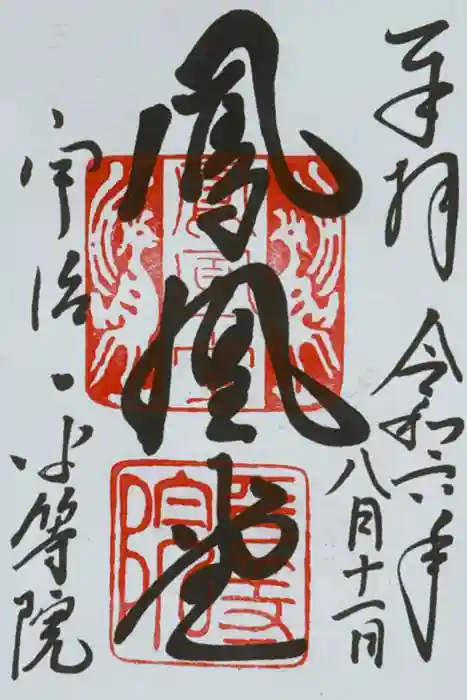 奉拝
令和六年
八月十一日
鳳凰堂
宇治・平等院